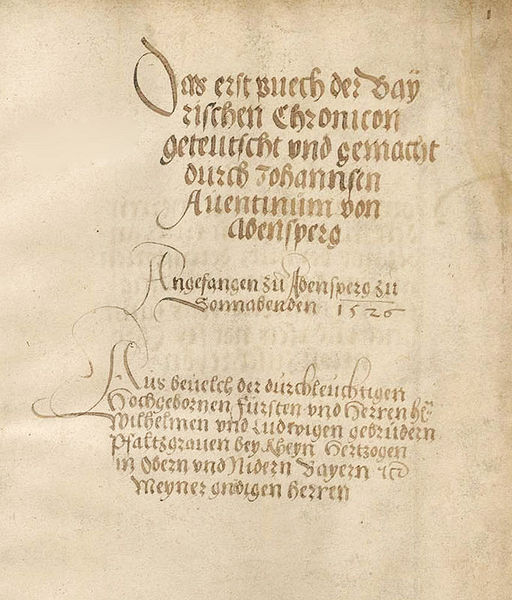 1
Das erst puech der Baÿ
rischen Chronicon
geteutscht vnd gemacht
durch Johannsen
Auentinum von
Abensperg
Angefangen zu Abensperg zu
Sonnabenden 1526
Aus beuelch der durchleuchtigen
Hochgebornen Fürsten vnd Herren h̄n̄
Wilhelmen vnd Ludwigen gebrüdern
Pfaltzgrauen bey Rheyn Hertzogen
in Obern vnd Nidern Bayern ꝛc
Meyner gndigen herren